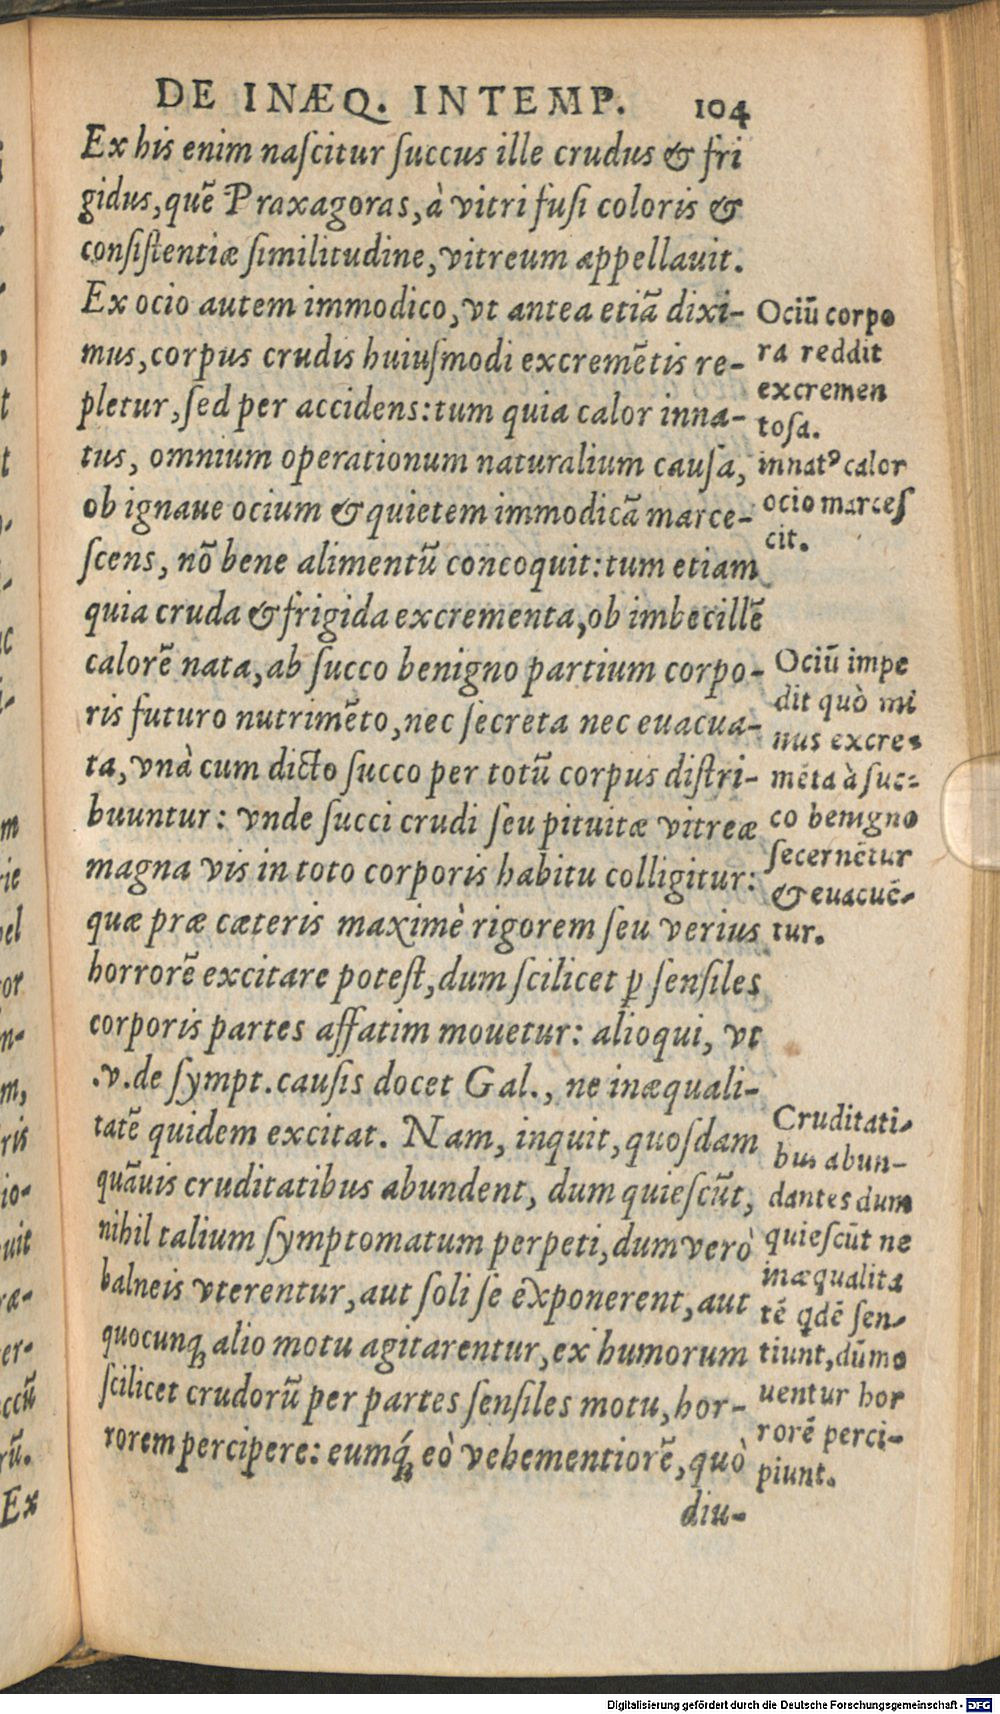 DE INÆQ. INTEMP. 104
Ex his enim naſcitur ſuccus ille crudus & fri
gidus, quẽ Praxagoras, à vitri fuſi coloris &
conſiſtentiæ ſimilitudine, vitreum appellauit.
Ex ocio autem immodico, vt antea etiã dixi-
mus, corpus crudis huiuſmodi excremẽtis re-
pletur, ſed per accidens: tum quia calor inna-
tus, omnium operationum naturalium cauſa,
ob ignaue ocium & quietem immodicã marce-
ſcens, nõ bene alimentũ concoquit: tum etiam
quia cruda & frigida excrementa, ob imbecillẽ
calorẽ nata, ab ſucco benigno partium corpo-
ris futuro nutrimẽto, nec ſecreta nec euacua-
ta, vnà cum dicto ſucco per totũ corpus diſtri-
buuntur: vnde ſucci crudi ſeu pituitæ vitreæ
magna vis in toto corporis habitu colligitur:
quæ præ cæteris maximè rigorem ſeu verius
horrorẽ excitare poteſt, dum ſcilicet ꝑ ſenſiles
corporis partes affatim mouetur: alioqui, vt
.v. de ſympt. cauſis docet Gal., ne inæquali-
tatẽ quidem excitat. Nam, inquit, quoſdam
quãuis cruditatibus abundent, dum quieſcũt,
nihil talium ſymptomatum perpeti, dum verò
balneis vterentur, aut ſoli ſe exponerent, aut
quocunq; alio motu agitarentur, ex humorum
ſcilicet crudorũ per partes ſenſiles motu, hor-
rorem percipere: eumq́; eò vehementiorẽ, quò
diu-
Ociũ corpo
ra reddit
excremen
toſa.
innatꝰ calor
ocio marceſ
cit.
Ociũ impe
dit quò mi
nus excre-
mẽta à ſuc-
co benigno
ſecernẽtur
& euacuẽ-
tur.
Cruditati-
bus abun-
dantes dum
quieſcũt ne
inæqualita
tẽ qdẽ ſen-
tiunt, dũ mo
uentur hor
rorẽ perci-
piunt.
Ex
Digitalisierung gefördert durch die Deutsche Forschungsgemeinschaft - DFG